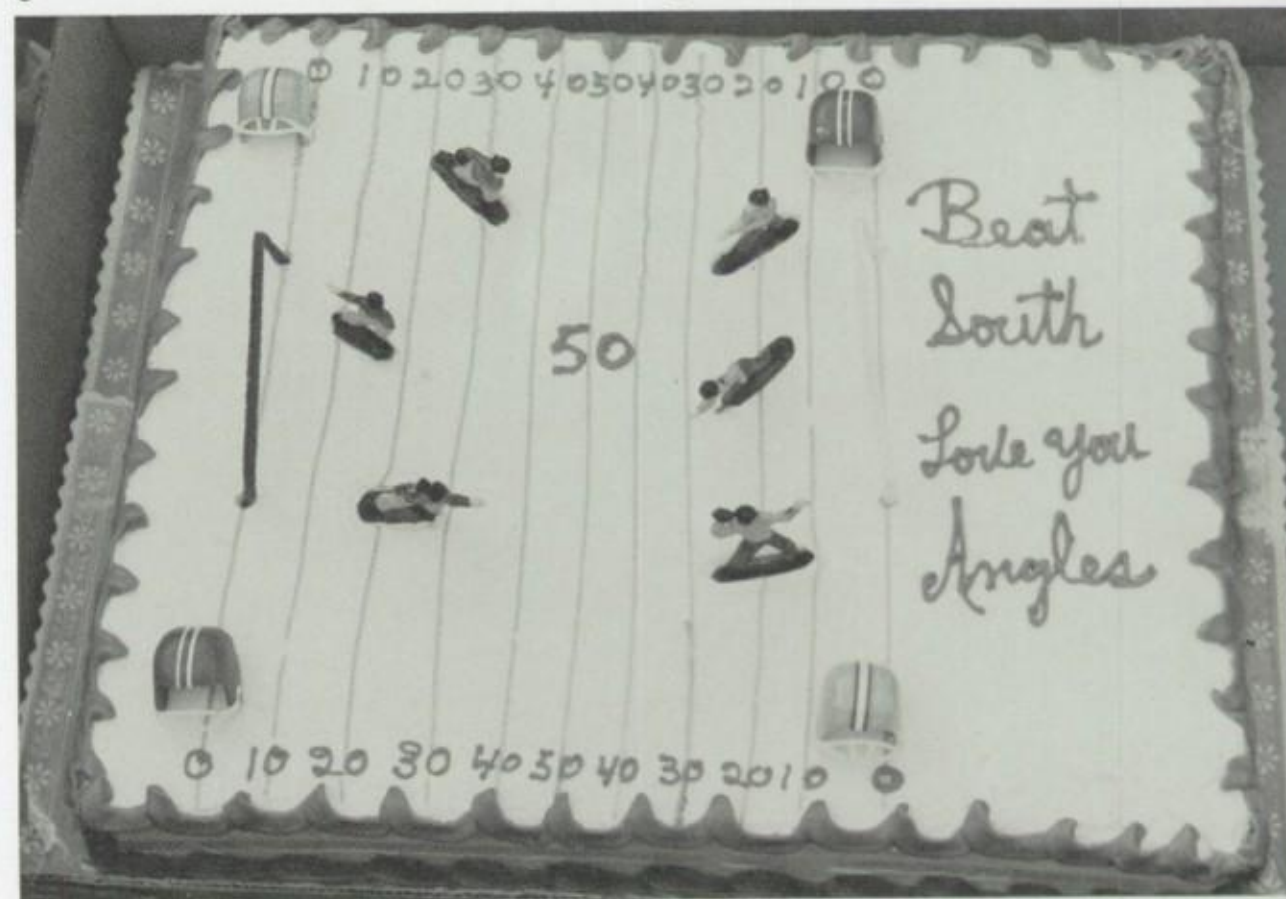 0 10 20 30 40 50 40 30 20 10 0
Beat
South
50
Love you
Angles
0 10 20 30 40 50 40 30 20 10 0